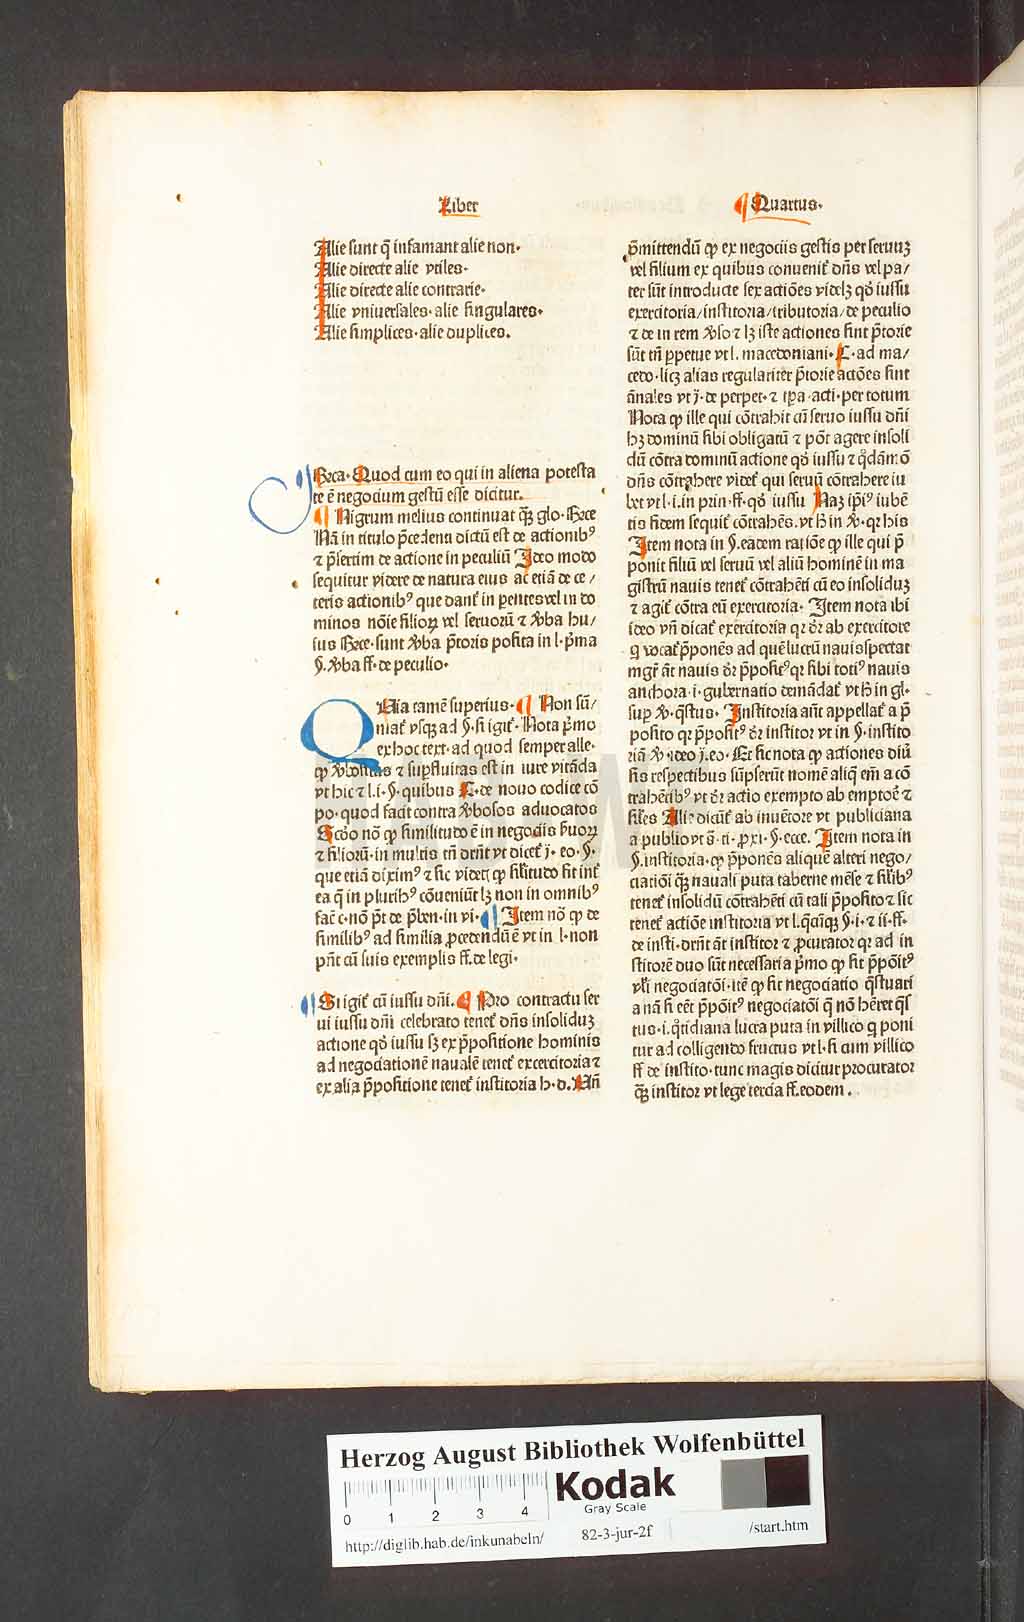 Liber
Quartus.
Alie sunt q̄ infamant alie non.
Alie directe alie vtiles.
Alie directe alie contrarie.
Alie vniuersales. alie singulares.
Alie simplices. alie duplices.
Brca. Quod cum eo qui in aliena potesta
te ē negocium gestū esse dicitur.
¶ Nigrum melius continuat qȝ glo. Brce
Nā in titulo p̄cedenti dictū est de actionibꝰ
⁊ p̄sertim de actione in peculiū Ideo modo
sequitur videre de natura eius ac etiā de ce/
teris actionibꝰ que dant᷑ in parentes vel in do
minos nōie filioꝝ vel seruorū ⁊ v̓ba hu/
ius Brce. sunt v̓ba p̄toris posita in l. p̓ma
§. v̓ba ff. de peculio.
Quia tamē superius. ¶ Non sū/
niat᷑ vsqȝ ad §. si igit᷑. Nota p̓mo
ex hoc text. ad quod semper alle.
ꝙ v̓bositas ⁊ suꝑfluitas est in iure vitāda
vt hic ⁊ l. i. §. quibus C. de nouo codice cō
po. quod facit contra v̓bosos aduocatos
Scđo nō ꝙ similitudo ē in negociis seruoꝝ
⁊ filiorū. in multis tn̄ dr̄nt vt dicet᷑ j. eo. §.
que etiā diximꝰ ⁊ sic videt᷑ ꝙ sil̓itudo sit int᷑
ea q̄ in pluribꝰ cōueniūt lȝ non in omnibꝰ
fac̄ c. nō pt̄ de p̄ben. in vi. ¶ Item nō ꝙ de
similibꝰ ad similia ꝓcedendū ē vt in l. non
pn̄t cū suis exemplis ff. de legi.
¶ Si igit᷑ cū iussu dn̄i. ¶ Pro contractu ser
ui iussu dn̄i celebrato tenet᷑ dn̄s insoliduȝ
actione qđ iussu sȝ ex p̄positione hominis
ad negociationē naualē tenet᷑ excercitoria ⁊
ex alia p̄positione tenet᷑ institoria h. d. An̄
p̄mittendū ꝙ ex negociis gestis per seruuȝ
vel filium ex quibus conuenit᷑ dn̄s vel pa/
ter sūt introducte sex actiōes videlȝ qđ iussu
exercitoria/institoria/tributoria/de peculio
⁊ de in rem v̓so ⁊ lȝ iste actiones sint p̄torie
sūt tn̄ ꝑpetue vt l. macedoniani. C. ad ma/
cedo. licȝ alias regulariter p̄torie actōes sint
ānales vt j. de perpet. ⁊ tꝑa. acti. per totum
Nota ꝙ ille qui cōtrahit cū seruo iussu dn̄i
hȝ dominū sibi obligatū ⁊ pōt agere insoli
dū cōtra dominū actione qđ iussu ⁊ q̄dāmō
dn̄s cōtrahere videt᷑ qui seruū cōtrahere iu
bet vt l. i. in prin. ff. qđ iussu Naȝ ip̄iꝰ iubē
tis fidem sequit᷑ cōtrahēs. vt h̄ in v̓. qr his
Item nota in §. eadem ratiōe ꝙ ille qui p̄
ponit filiū vel seruū vel aliū hominē in ma
gistrū nauis tenet᷑ cōtrahēti cū eo insoliduȝ
⁊ agit᷑ cōtra eū exercitoria. Item nota ibi
ideo vn̄ dicat᷑ exercitoria qr dr̄ ab exercitore
q̄ vocat᷑ p̄ponēs ad quē lucrū nauis spectat
mgr̄ āt nauis dr̄ p̄positꝰ qr sibi totiꝰ nauis
anchora. i. gubernatio demādat᷑ vt h̄ in gl.
sup v̓. q̄stus. Institoria aūt appellat᷑ a p̄
posito qr p̄positꝰ dr̄ institor vt in §. instito
riā v̓. ideo j. eo. Et sic nota ꝙ actiones diu̓
sis respectibus sūpserūt nomē aliq̄ em̄ a cō
trahētibꝰ vt dr̄ actio exempto ab emptōe ⁊
sil̓es Alie dicūt᷑ ab inuētore vt publiciana
a publio vt s̄. ti. ꝓxi. §. ecce. Item nota in
§. institoria. ꝙ p̄ponēs aliquē alteri nego/
ciatiōi qȝ nauali puta taberne mēse ⁊ sil̓ibꝰ
tenet᷑ insolidū cōtrahēti cū tali p̄posito ⁊ sic
tenet᷑ actiōe institoria vt l. q̄cūqȝ §. i. ⁊ ii. ff.
de insti. dr̄nt āt institor ⁊ ꝓcurator qr ad in
stitorē duo sūt necessaria p̓mo ꝙ sit p̄pōitꝰ
vl̓i negociatōi. itē ꝙ sit negociatio q̄stuari
a nā si eēt p̄pōitꝰ negociatōi q̄ nō hēret q̄s
tus. i. q̄tidiana lucra puta in villico q̄ poni
tur ad colligendo fructus vt l. si cum villico
ff de instito. tunc magis dicitur procurator
qȝ institor vt lege tercia ff. eodem.
HAB W
Herzog August Bibliothek Wolfenbüttel
Kodak
Gray Scale
0 1 2 3 4
http://diglib.hab.de/inkunabeln/ 82-3-jur-2f /start.htm